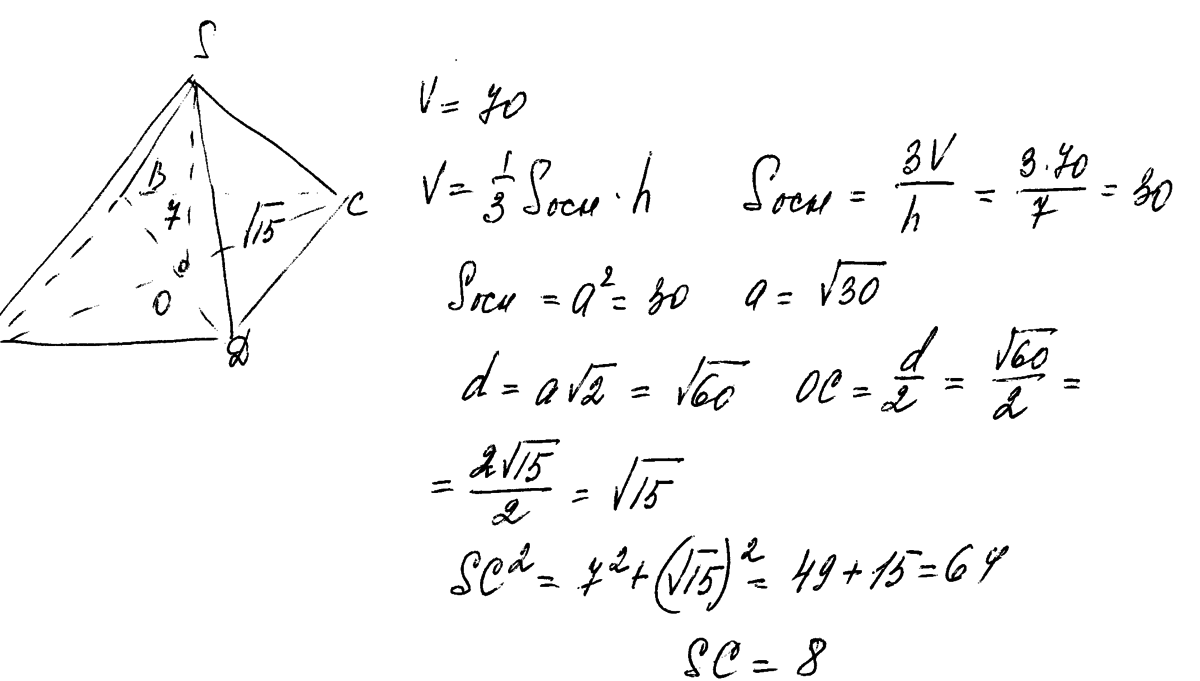 S
V = 70
B
7
√15
C
V = 1/3 Sосн · h    Sосн = 3V/h = 3·70/7 = 30
d
O
Sосн = a² = 30    a = √30
D
d = a√2 = √60    OC = d/2 = √60/2 =
= 2√15/2 = √15
SC² = 7² + (√15)² = 49 + 15 = 64
SC = 8